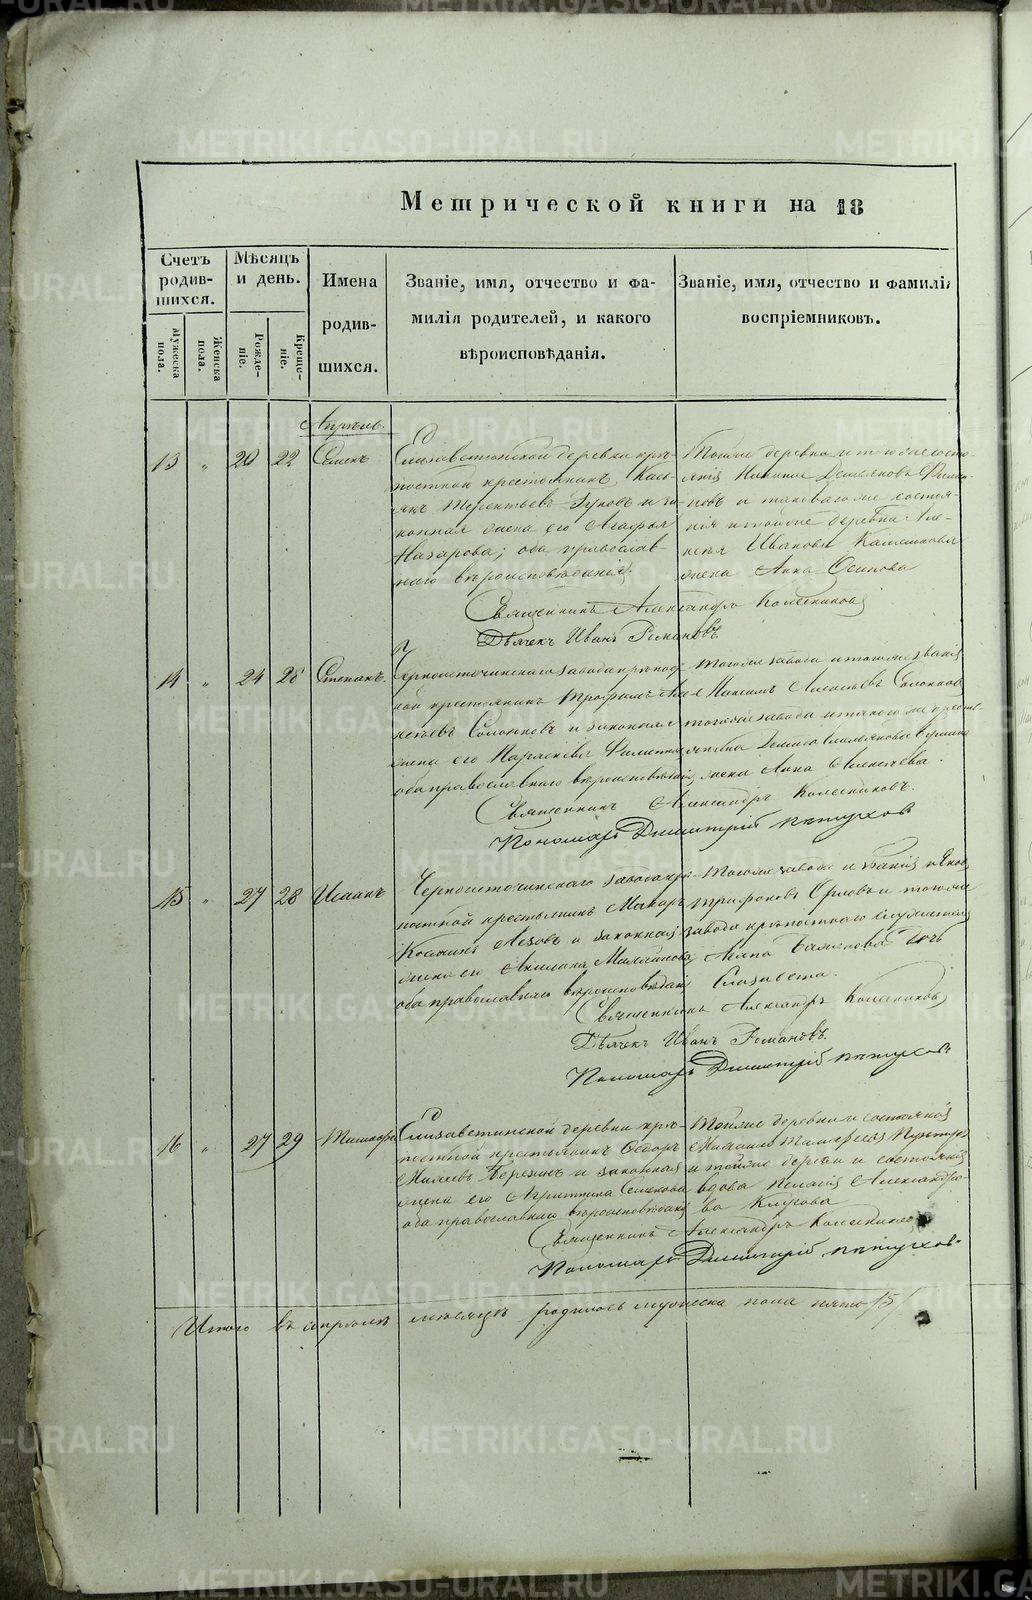 Метрической книги на 18
Счетъ родив-шихся.
Мѣсяцъ и день.
Имена родив-шихся.
Званіе, имя, отчество и фа-
милія родителей, и какого
вѣроисповѣданія.
Званіе, имя, отчество и фамилія
воспріемниковъ.
Мужеска пола.
Женска пола.
Рожде-ніе.
Креще-ніе.
Апрѣль.
13 " 20 22 Семенъ
Елизаветинской деревни крѣ-
постной крестьянинъ
Терентьевъ Зуковъ и за-
конная жена его Агафья
Назарова; оба православ-
наго вѣроисповѣданія.
Тойже деревни и тогоже состо-
янія Никита Демьяновъ
новъ и таковагоже состоя-
нія и тойже деревни Але-
ксѣя Иванова
жена Анна Осипова
Священникъ Александръ Колесниковъ
Дьячекъ Иванъ Романовъ.
14 " 24 28 Степанъ.
Черноисточинскаго завода крѣпост-
ной крестьянинъ Трофимъ Але-
ксѣевъ Солонковъ и законная
жена его Параскѣва
оба православнаго вѣроисповѣданія
Тогоже завода и тогоже званія
Максимъ Алексѣевъ
тогоже завода и такогоже кресть-
янина
жена Анна Алексѣева.
Священникъ Александръ Колесниковъ.
Пономарь Димитрій Пѣтуховъ
15 " 27 28 Исаакъ
Черноисточинскаго завода крѣ-
постной крестьянинъ Макаръ
Козминъ и законная
жена его Акилина Михайлова
оба православнаго вѣроисповѣданія
Тогоже завода и званія
Трифоновъ Орловъ и тогоже
завода крѣпостнаго
Баженова дочь
Елизавета.
Священникъ Александръ Колесниковъ
Дьячекъ Иванъ Романовъ.
Пономарь Димитрій Пѣтуховъ
16 " 27 29 Тимофей
Елизаветинской деревни крѣ-
постной крестьянинъ Ѳедоръ
Березинъ и законная
жена его Агрипина Семенова
оба православнаго вѣроисповѣданія
Тойже деревни и состоянія
Михаилъ
и тойже деревни и состоянія
вдова Пелагія Александро-
ва
Священникъ Александръ Колесниковъ
Пономарь Димитрій Пѣтуховъ.
Итого въ апрѣлѣ мѣсяцѣ родилось мужеска пола пять /5/
METRIKI.GASO-URAL.RU